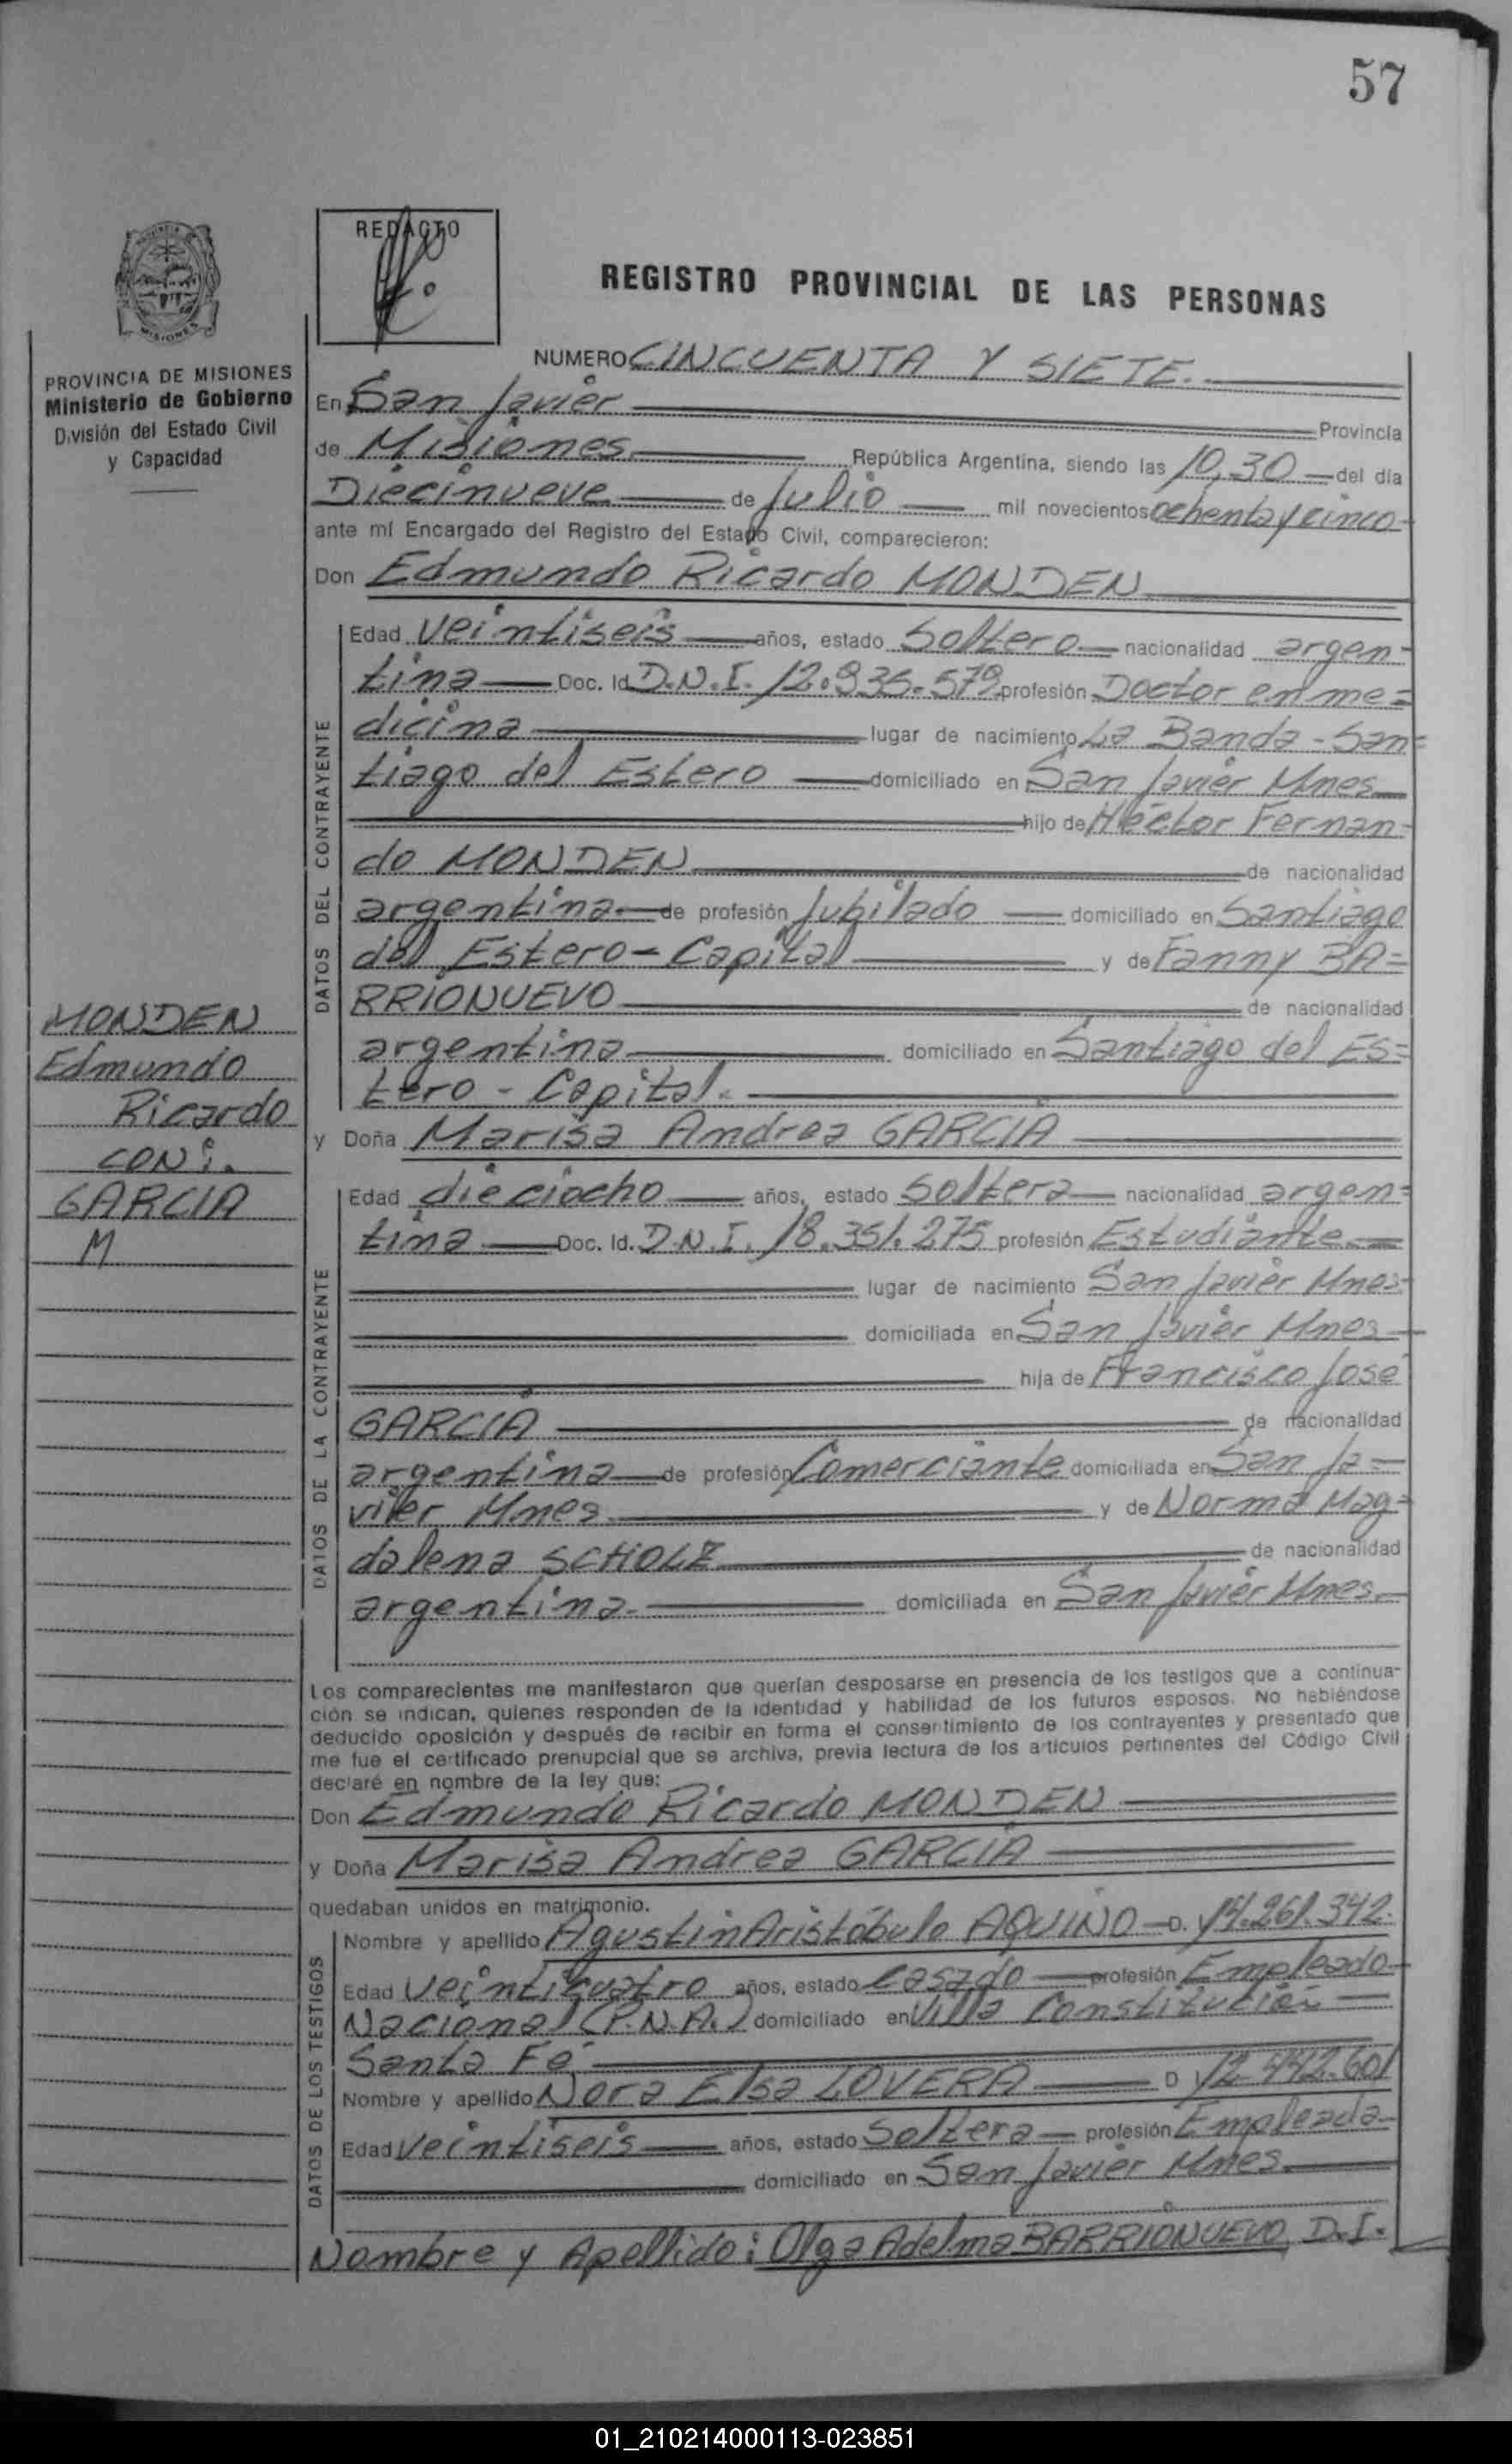 57
REDACTO
REGISTRO PROVINCIAL DE LAS PERSONAS
MISIONES
PROVINCIA DE MISIONES
Ministerio de Gobierno
División del Estado Civil
y Capacidad
NUMERO CINCUENTA Y SIETE.
En San Javier Provincia
de Misiones República Argentina, siendo las 10,30 del día
Diecinueve de Julio mil novecientos ochenta y cinco
ante mí Encargado del Registro del Estado Civil, comparecieron:
Don Edmundo Ricardo MONDEN
DATOS DEL CONTRAYENTE
Edad veintiseis años, estado Soltero nacionalidad argen=
tina Doc. Id. D.N.I. 12.935.579 profesión Doctor en me=
dicina lugar de nacimiento La Banda - San=
tiago del Estero domiciliado en San Javier Mnes
hijo de Héctor Fernan=
do MONDEN de nacionalidad
argentina de profesión Jubilado domiciliado en Santiago
del Estero - Capital y de Fanny BA=
RRIONUEVO de nacionalidad
argentina domiciliado en Santiago del Es=
tero - Capital.
MONDEN
Edmundo
Ricardo
CON:
GARCIA
M
y Doña Marisa Andrea GARCIA
DATOS DE LA CONTRAYENTE
Edad dieciocho años, estado Soltera nacionalidad argen=
tina Doc. Id. D.N.I. 18.351.275 profesión Estudiante
lugar de nacimiento San Javier Mnes
domiciliada en San Javier Mnes
hija de Francisco José
GARCIA de nacionalidad
argentina de profesión Comerciante domiciliada en San Ja=
vier Mnes y de Norma Mag=
dalena SCHOLZ de nacionalidad
argentina. domiciliada en San Javier Mnes.
Los comparecientes me manifestaron que querían desposarse en presencia de los testigos que a continua-
ción se indican, quienes responden de la identidad y habilidad de los futuros esposos. No habiéndose
deducido oposición y después de recibir en forma el consentimiento de los contrayentes y presentado que
me fue el certificado prenupcial que se archiva, previa lectura de los artículos pertinentes del Código Civil
declaré en nombre de la ley que:
Don Edmundo Ricardo MONDEN
y Doña Marisa Andrea GARCIA
quedaban unidos en matrimonio.
DATOS DE LOS TESTIGOS
Nombre y apellido Agustin Aristóbulo AQUINO D. 14.261.342.
Edad veinticuatro años, estado casado profesión Empleado
Nacional (P.N.A.) domiciliado en Villa Constitución
Santa Fe
Nombre y apellido Nora Elsa LOVERA D 12.442.601
Edad veintiseis años, estado Soltera profesión Empleada
domiciliado en San Javier Mnes.
Nombre y Apellido: Olga Adelma BARRIONUEVO D.I.
01_210214000113-023851